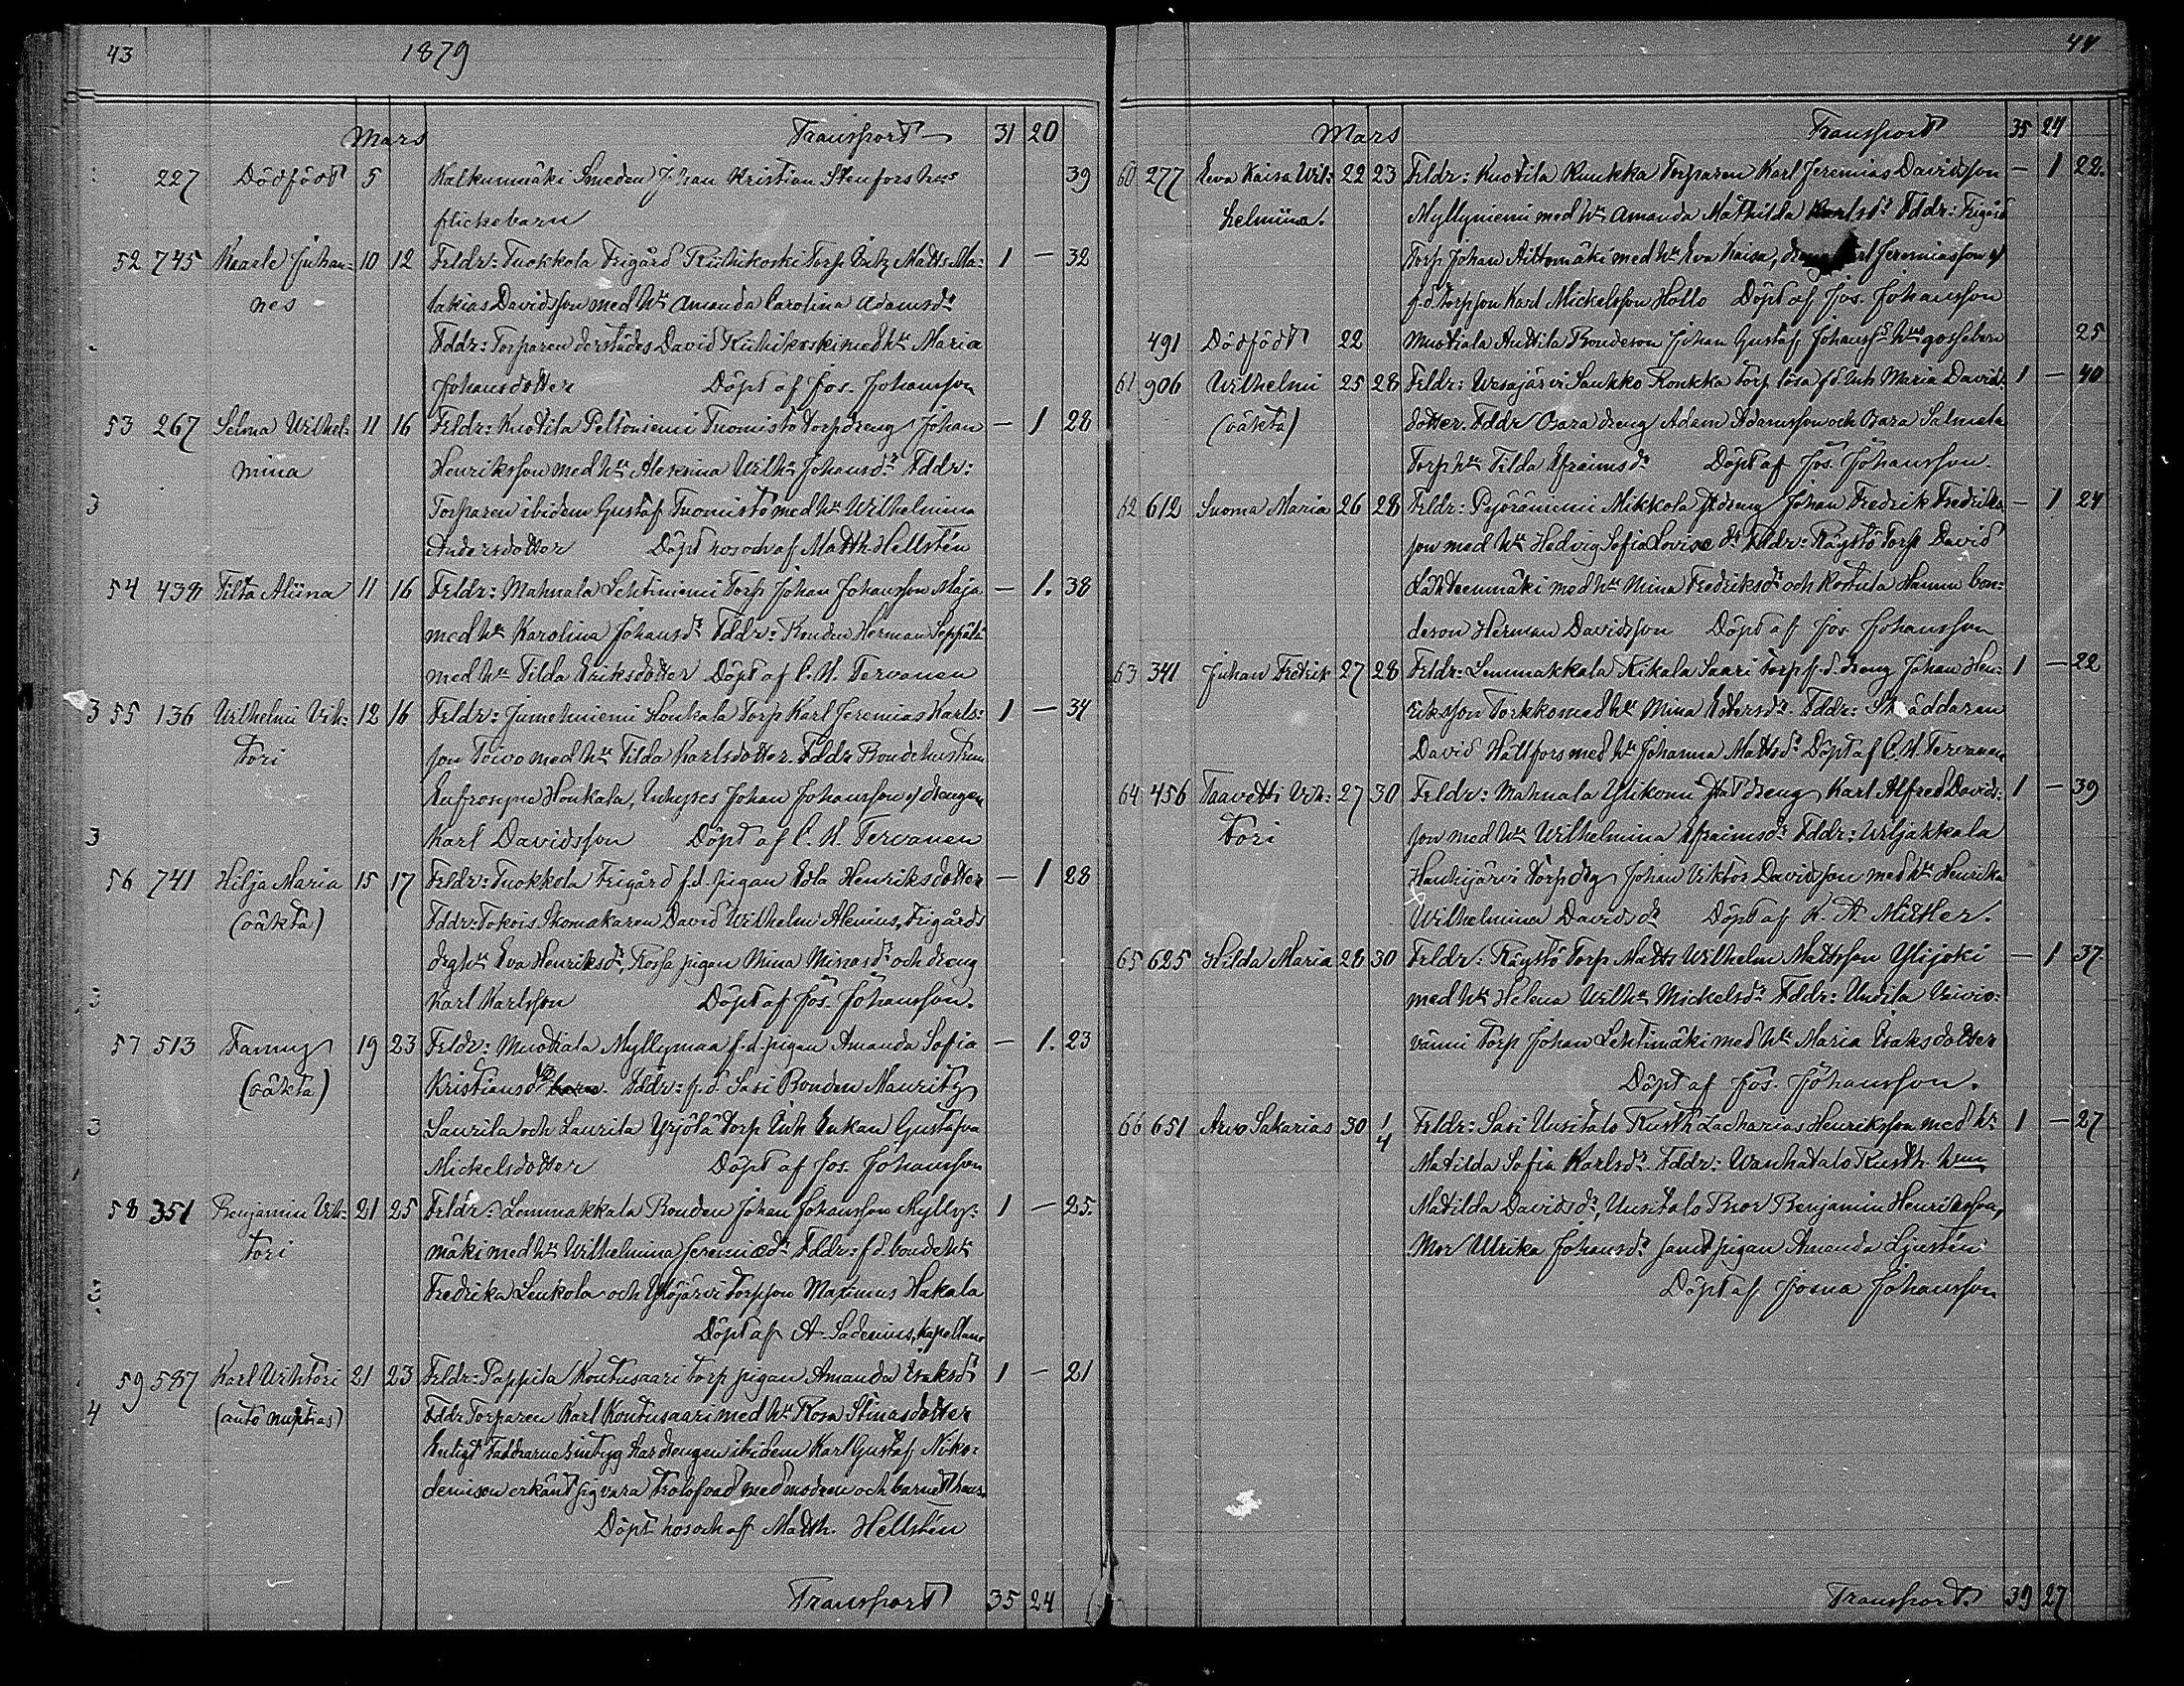 43 1879
Mars Transport 31 20
227 Dödfödt 5 Kalkunmäki Smeden Johan Kristian Stenfors hus 39
flickebarn
52 745 Kaarle Juhan- 10 12 Frldr: Tuokkola Frigård Riihikoski Torp Inh Matts Ma- 1 — 32
nes lakias Davidsson med hn Amanda Carolina Adamsdr
Fddr: Torparen derstädes David Riihikoski med hn Maria
Johansdotter Döpt af Jos. Johansson
53 267 Selma Wilhel- 11 16 Frldr: Kuotila Peltoniemi Tuomisto torpdreng Johan — 1 28
mina Henriksson med hn Alexina Wilhn Johansdr Fddr:
3 Torparen ibidem Gustaf Tuomisto med hn Wilhelmina
Andersdotter Döpt hos och af Matth. Hellstén
54 438 Tilta Aliina 11 16 Frldr: Mahnala Lehtiniemi Torp Johan Johansson Maja — 1. 38
med hn Karolina Johansdr Fddr: Bonden Herman Seppälä
med hn Tilda Eriksdotter Döpt af C. H. Tervanen
3 55 136 Wilhelmi Vih- 12 16 Frldr: Jumehniemi Honkala Torp Karl Jeremias Karls- 1 — 34
tori son Toivo med hn Tilda Karlsdotter. Fddr Bondehustrun
Eufrosyne Honkala, Inhyses Johan Johansson o/ drengen
3 Karl Davidsson Döpt af C. H. Tervanen
56 741 Hilja Maria 15 17 Frldr: Tuokkola Frigård f.d. pigan Edla Henriksdotter — 1 28
(oäkta) Fddr: Tokois Skomakaren David Wilhelm Alenius, Frigårds
drg hn Eva Henriksdr, Rossa pigan Mina Minasdr och dreng
Karl Karlsson Döpt af Jos. Johansson.
57 513 Fanny 19 23 Frldr: Muotiala Myllymaa f.d. pigan Amanda Sofia — 1. 23
(oäkta) Kristiansdr barn. Fddr: f.d. Sasi Bonden Mauritz
3 Laurila och Laurila Yrjölä torp Inh Enkan Gustafva
Mickelsdotter Döpt af Jos. Johansson
58 351 Benjamin Vih- 21 25 Frldr: Lemmakkala Bonden Johan Johansson Mylly- 1 — 25.
tori mäki med hn Wilhelmina Jeremiædr Fddr: f d bonde hn
Fredrika Leukola och Ylöjärvi torpson Maximus Hakala
Döpt af A. Sadenius, kapellan
59 587 Karl Wihtori 21 23 Frldr: Pappila Koutusaari torp pigan Amanda Isaksdr 1 — 21
4 (ante nuptias) Fddr Torparen Karl Koutusaari med hn Rosa Stinasdotter
Enligt Faddrarnas intyg har drengen ibidem Karl Gustaf Niko-
demison erkänt sig vara trolofvad med modren och barnet hans.
Döpt hos och af Matth. Hellstén
Transport 35 24
44
Mars Transport 35 24
60 277 Eeva Kaisa Wil- 22 23 Frldr: Kuotila Kuukka Torparen Karl Jeremias Davidsson — 1 22.
helmiina. Myllyniemi med hn Amanda Mathilda Karlsdr Fddr: Frigård
Torp Johan Aittomäki med hn Eva Kaisa, Jeremiasson o/
f.d torpson Karl Mickelsson Hollo Döpt af Jos. Johansson
491 Dödfödt 22 Muotiala Anttila Bondeson Johan Gustaf Johanss hus gossebarn 25
61 906 Wilhelmi 25 28 Frldr: Wesajärvi Saukko Ronkka Torp lösa f.d. Inh Maria Davids 1 — 40
(oäkta) dotter. Fddr Osara dreng Adam Adamsson och Osara Salmela
Torp hn Tilda Efraimsdr Döpt af Jos. Johansson.
62 612 Suoma Maria 26 28 Frldr: Pyöräniemi Mikkola dreng Johan Fredrik Fredriks — 1 24
son med hn Hedvig Sofia Lovisædr Fddr: Räystö Torp David
Lähteenmäki med hn Mina Fredriksdr och Kortula Hannu bon-
deson Herman Davidsson Döpt af Jos. Johansson
63 341 Juhan Fredrik 27 28 Frldr: Lemmakkala Rikala Saari Torp f.d. dreng Johan Hen- 1 — 22
riksson Torkko med hn Mina Estersdr. Fddr: Skräddaren
David Hallfors med hn Johanna Mattsdr Döpt af C. H. Tervanen
64 456 Taavetti Vih- 27 30 Frldr: Mahnala Ylikomi Statdreng Karl Alfred Davids- 1 — 39
tori son med hn Wilhelmina Efraimsdr Fddr: Wiljakkala
Hanhijärvi torpdrg Johan Viktor Davidsson med hn Henrika
Wilhelmina Davidsdr Döpt af K. A. Mittler.
65 625 Hilda Maria 28 30 Frldr: Räystö Torp Matts Wilhelm Mattsson Ylijoki — 1 37.
med hn Helena Wilhn Mickelsdr Fddr: Undila Vuivio-
vanni Torp Johan Lehtimäki med hn Maria Isaksdotter
Döpt af Jos. Johansson.
66 651 Arvo Sakarias 30 1/4 Frldr: Sasi Uusitalo Rusth Zacharias Henriksson med hn 1 — 27
Matilda Sofia Karlsdr. Fddr: Wanhatalo Rusth. hun
Matilda Davidsdr, Uusitalo Bror Benjamin Henriksson,
Mor Ulrika Johansdr samt pigan Amanda Ljustén
Döpt af Josua Johansson
Transport. 39 27